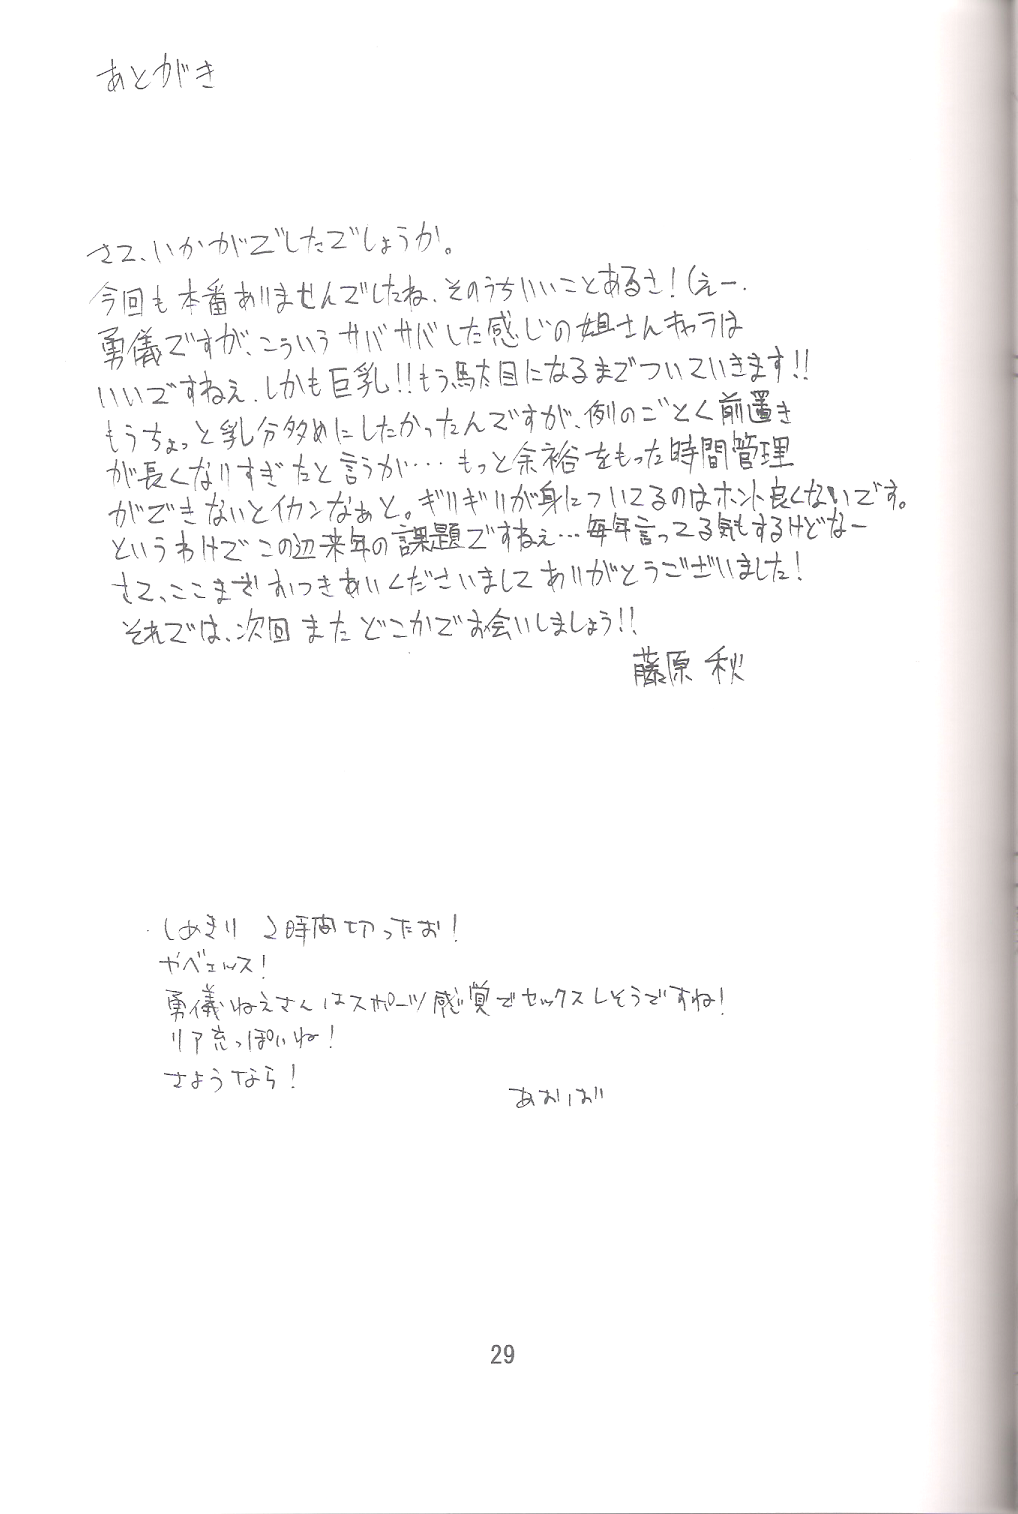 あとがき
さて、いかがでしたでしょうか。
今回も本番ありませんでしたね、そのうちいいことあるさ!(えー.
勇儀ですが、こういうサバサバした感じの姐さんキャラは
いいですねぇ.しかも巨乳!!もう駄目になるまでついていきます!!
もうちょっと乳分多めにしたかったんですが、例のごとく前置き
が長くなりすぎたと言うか…もっと余裕をもった時間管理
ができないとイカンなぁと。ギリギリが身についてるのはホント良くないです。
というわけでこの辺来年の課題ですねぇ…毎年言ってる気もするけどなー
さて、ここまでおつきあいくださいましてありがとうございました!
それでは、次回またどこかでお会いしましょう!!
藤原 秋
しめきり 2時間切ったお!
やべェッス!
勇儀ねえさんはスポーツ感覚でセックスしそうですね!
リア充っぽいね!
さようなら!
あおば
29